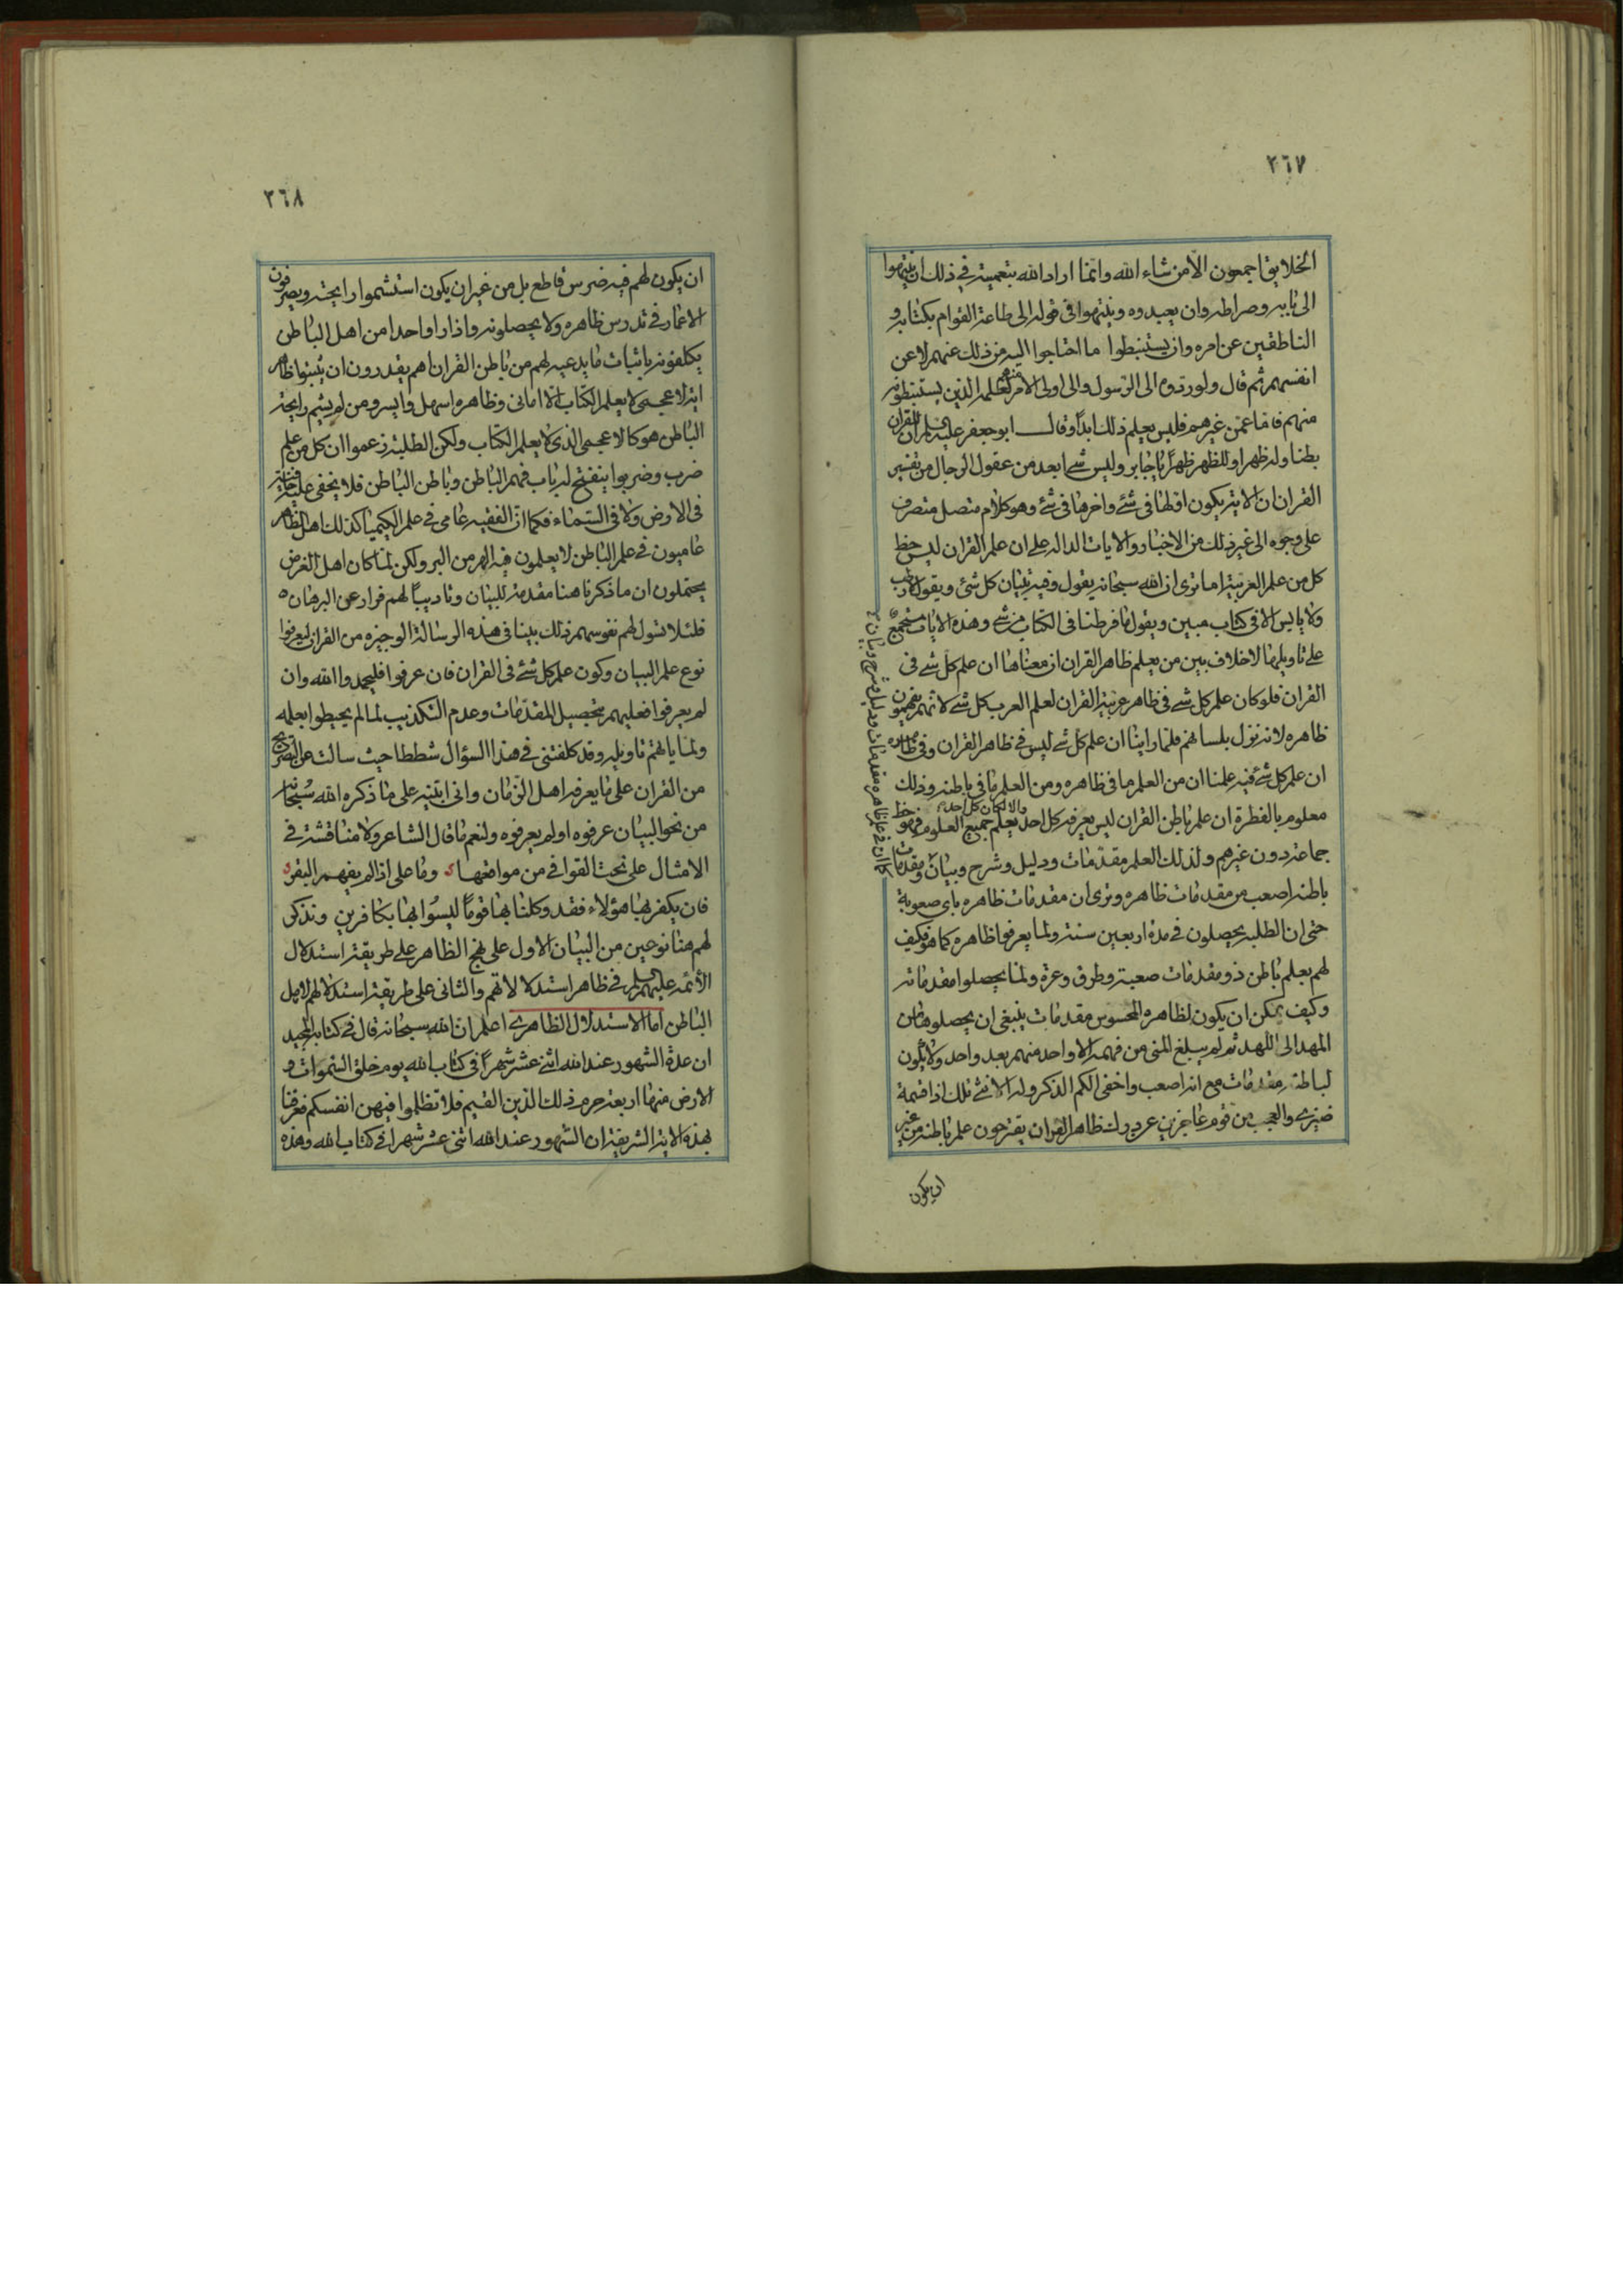 ٣٦٧
الخلايق اجمعون الا من شاء الله وانما اراد الله بتعميته في ذلك ان ينتهوا
الى بابه وصراطه وان يعبدوه وينتهوا فى قوله الى طاعة القوام بكتابه و
الناطقين عن امره وان يستنبطوا ما احتاجوا اليه من ذلك عنهم لا عن
انفسهم ثم قال ولو ردوه الى الرسول والى اولى الامر منهم لعلمه الذين يستنبطونه
منهم فاما عن غيرهم فليس يعلم ذلك ابداً وقال ابو جعفر عليه السلم ان للقران
بطنا وله ظهر وللظهر ظهراً يا جابر وليس شئ ابعد من عقول الرجال من تفسير
القران ان الاية يكون اولها فى شئ واخرها فى شئ وهو كلام متصل متصرف
على وجوه الى غير ذلك من الاخبار والايات الدالة على ان علم القران ليس حظ
كل من علم العربية اما ترى ان الله سبحانه يقول وفيه تبيان كل شئ ويقول لا رطب
ولا يابس الا فى كتاب مبين ويقول ما فرطنا فى الكتاب من شئ وهذه الايات مستجمع
على تاويلها لا خلاف بين من يعلم ظاهر القران ان معناها ان علم كل شئ فى
القران فلو كان علم كل شئ فى ظاهر عربية القران لعلم العرب كل شئ لانهم يفهمون
ظاهره لانه نزل بلسانهم فلما راينا ان علم كل شئ ليس فى ظاهر القران وفى
ان علم كل شئ فيه علمنا ان من العلم ما فى ظاهره ومن العلم ما فى باطنه وذلك
معلوم بالفطرة ان علم باطن القران ليس يعرفه كل احد والا لكان كل احد يعلم جميع العلوم فهو حظ
جماعة دون غيرهم ولذلك العلم مقدمات ودليل وشرح وبيان ومقدمات
باطنه اصعب من مقدمات ظاهره وترى ان مقدمات ظاهره باى صعوبة
حتى ان الطلبة يحصلون فى مدة اربعين سنة ولما يعرفوا ظاهره كما هو فكيف
لهم بعلم باطن ذو مقدمات صعبة وطرق وعرة ولما يحصلوا مقدماته
وكيف يمكن ان يكون لظاهره المحسوس مقدمات ينبغى ان يحصلوها من
المهد الى اللهد ثم لم يبلغ المنى من فهمه الا واحد منهم بعد واحد ولا يكون
لباطنه مقدمات مع انه اصعب واخفى الكم الذكر وله الانثى تلك اذا قسمة
ضيزى والعجب من قوم عاجزين عن درك ظاهر القران يقترحون علم باطنه من غير
ان يكون
٣٦٨
ان يكون لهم فيه ضرس قاطع بل من غير ان يكون استشموا رايحته ويصرفون
الاعمار فى تدرس ظاهره ولا يحصلونه واذا راوا واحدا من اهل الباطن
يكلفونه باثبات ما يدعيه لهم من باطن القران اهم يقدرون ان يثبتوا ظاهر
اية لاعجمى لا يعلم الكتاب الا امانى وظاهره اسهل وايسر ومن لم يشم رايحة
الباطن هو كالاعجمى الذى لا يعلم الكتاب ولكن الطلبة زعموا ان كل من علم
ضرب وضربوا ينفتح له باب فهم الباطن وباطن الباطن فلا يخفى عليه خافية
فى الارض ولا فى السماء فكما ان الفقيه عامى فى علم الكيميا كذلك اهل الظاهر
عاميون فى علم الباطن لا يعلمون فيه الهر من البر ولكن لما كان اهل الغرض
يحتملون ان ما ذكرنا هنا مقدمة للبيان وتاديباً لهم فرار عن البرهان
فلئلا تسول لهم نفوسهم ذلك بينا فى هذه الرسالة الوجيزه من القران ليعرفوا
نوع علم البيان وكون علم كل شئ فى القران فان عرفوا فليحمدوا الله وان
لم يعرفوا فعليهم بتحصيل المقدمات وعدم التكذيب لما لم يحيطوا بعلمه
ولما ياتهم تاويله وقد كلفتنى فى هذا السؤال شططا حيث سالت عن التصريح
من القران على ما يعرفه اهل الزمان وانى ابينه على ما ذكره الله سبحانه
من نحو البيان عرفوه او لم يعرفوه ولنعم ما قال الشاعر ولا مناقشة فى
الامثال على نحت القوافى من مواقعها وما على اذا لم يفهم البقر
فان يكفر بها هؤلاء فقد وكلنا بها قوماً ليسوا بها بكافرين ونذكر
لهم هنا نوعين من البيان الاول على نهج الظاهر على طريقة استدلال
الأئمة عليهم السلم فى ظاهر استدلالاتهم والثانى على طريقة استدلالهم لاهل
الباطن اما الاستدلال الظاهرى اعلم ان الله سبحانه قال فى كتابه المجيد
ان عدة الشهور عند الله اثنى عشر شهراً فى كتاب الله يوم خلق السموات و
الارض منها اربعة حرم ذلك الدين القيم فلا تظلموا فيهن انفسكم فعرفنا
بهذه الاية الشريفة ان الشهور عند الله اثنى عشر شهرا فى كتاب الله وهذه